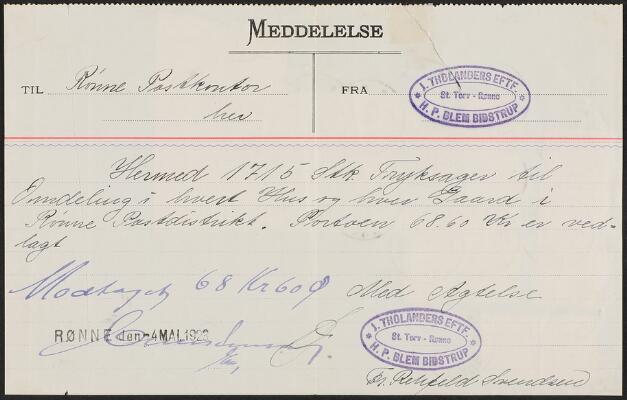 MEDDELELSE
TIL Rønne Postkontor
her
FRA
J. THOLANDERS EFTF.
St. Torv - Rønne
H. P. BLEM BIDSTRUP
Hermed 1715 Stk. Tryksager til
Omdeling i hvert Hus og hver Gaard i
Rønne Postdistrikt. Portoen 68.60 Kr er ved-
lagt
Modtaget 68 Kr 60 Ø
Med Agtelse
RØNNE den -4 MAI. 192
J. THOLANDERS EFTF.
St. Torv - Rønne
H. P. BLEM BIDSTRUP
Fr. Rehfeld Svendsen